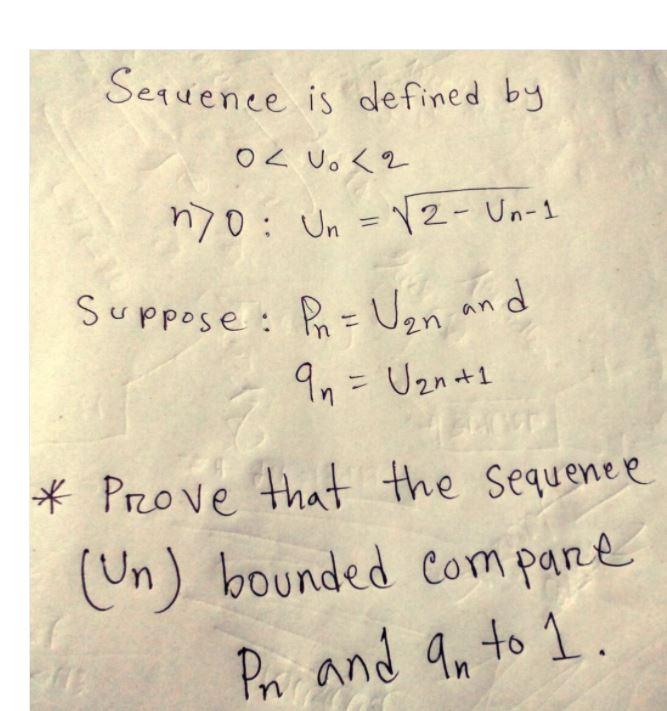 Sequence is defined by
0 < U₀ < 2
n>0 : Uₙ = √2 - Uₙ₋₁
Suppose : Pₙ = U₂ₙ and
qₙ = U₂ₙ₊₁
* Prove that the sequence
(Uₙ) bounded compare
Pₙ and qₙ to 1.